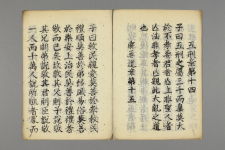 五刑章第十四
子曰五刑之屬三千而辜莫大
於不孝要君者亡上非聖人者
亡法非孝者亡親此大亂之道
也
廣要道章第十五
子曰教民親愛莫善於孝教民
禮順莫善於弟移風易俗莫善
於樂安上治民莫善於禮禮者
敬而已矣故敬其父則子說敬
其兄則弟說敬其君則臣說敬
一人而千萬人說所敬者寡而